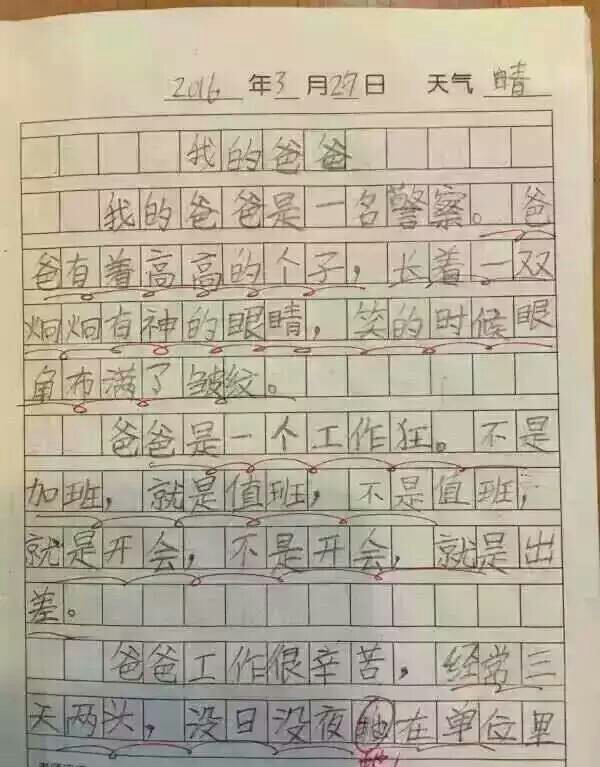 2016年3月27日 天气 晴
我的爸爸
我的爸爸是一名警察。爸
爸有着高高的个子，长着一双
炯炯有神的眼睛，笑的时候眼
角布满了皱纹。
爸爸是一个工作狂。不是
加班，就是值班，不是值班，
就是开会，不是开会，就是出
差。
爸爸工作很辛苦，经常三
天两头，没日没夜在单位里